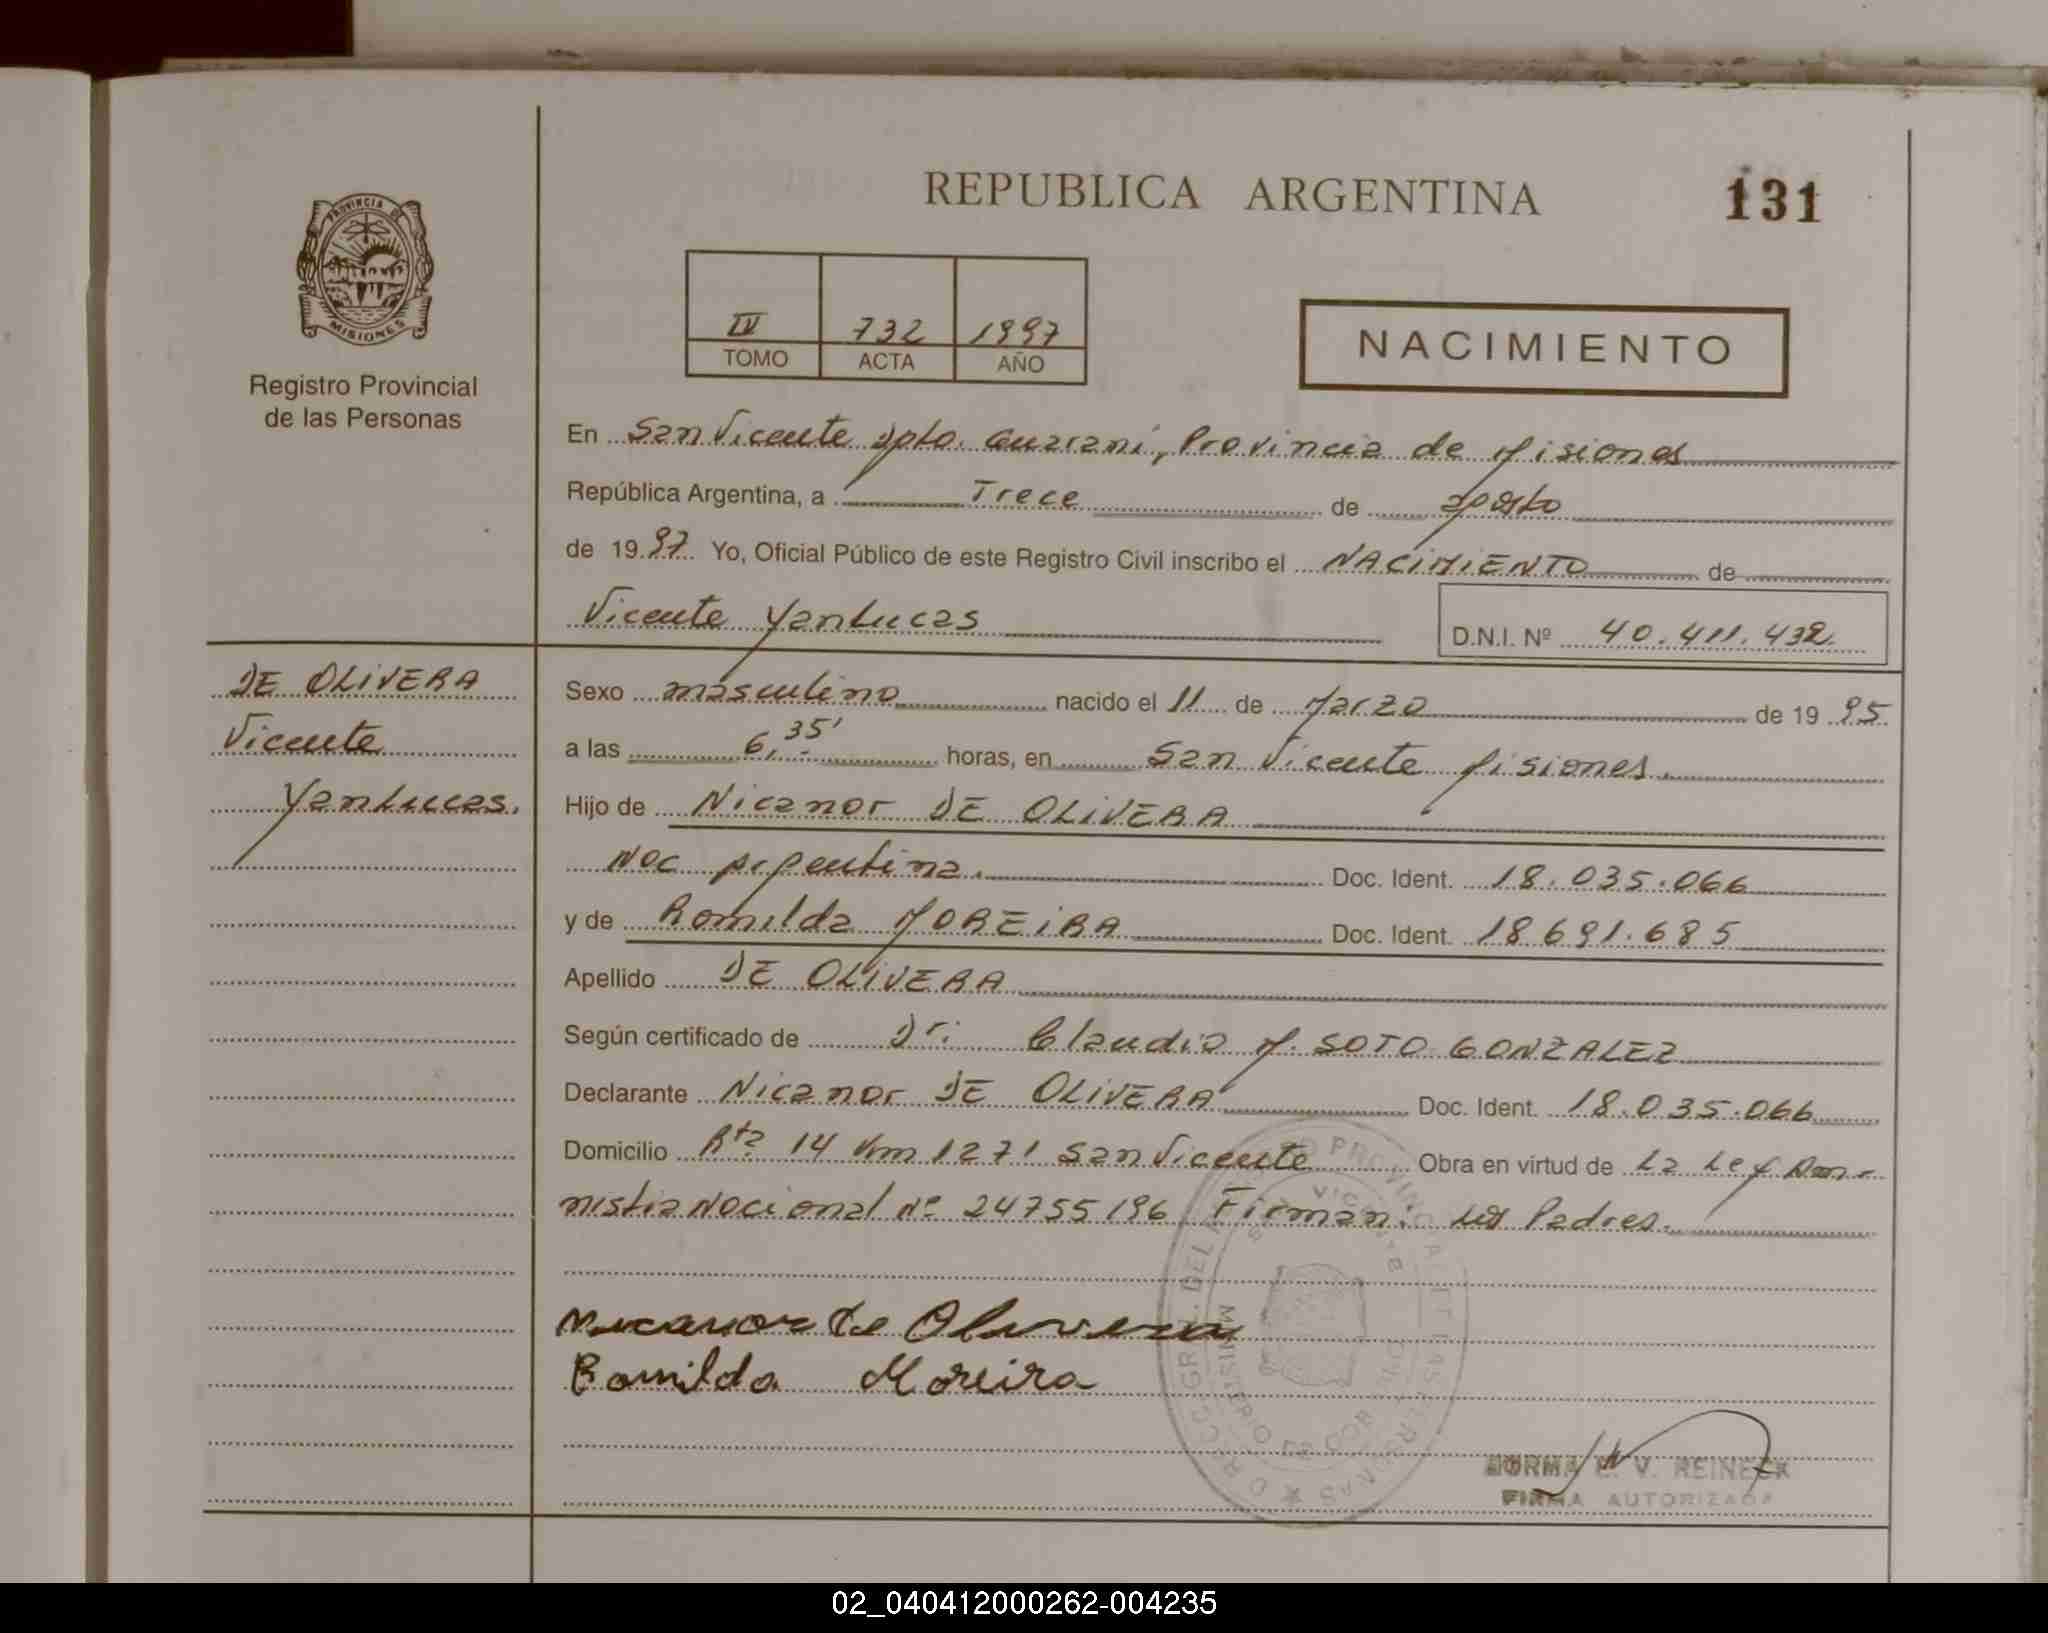 REPUBLICA ARGENTINA
131
PROVINCIA DE
MISIONES
Registro Provincial
de las Personas
IV 732 1997
TOMO ACTA AÑO
NACIMIENTO
En San Vicente Dpto. Guaraní, Provincia de Misiones
República Argentina, a Trece de agosto
de 1997. Yo, Oficial Público de este Registro Civil inscribo el NACIMIENTO de
Vicente YanLucas
D.N.I. Nº 40.411.432.
DE OLIVERA
Vicente
YanLucas.
Sexo masculino nacido el 11 de Marzo de 1995.
a las 6,35' horas, en San Vicente Misiones.
Hijo de Nicanor DE OLIVERA
Nac Argentina. Doc. Ident. 18.035.066
y de Romilda MOREIRA Doc. Ident. 18691.685
Apellido DE OLIVERA
Según certificado de Dr: Claudio M. SOTO GONZALEZ
Declarante Nicanor DE OLIVERA Doc. Ident. 18.035.066
Domicilio Rta 14 Km 1271 San Vicente Obra en virtud de La Ley Am-
nistia Nacional Nº 24755/96 Firman: los Padres.
Nicanor de Olivera
Romilda Moreira
NORMA V. REINECK
FIRMA AUTORIZADA
02_040412000262-004235